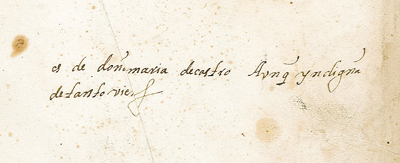 es de doña maria de castro Avnq̃ yndigna
de tanto vien